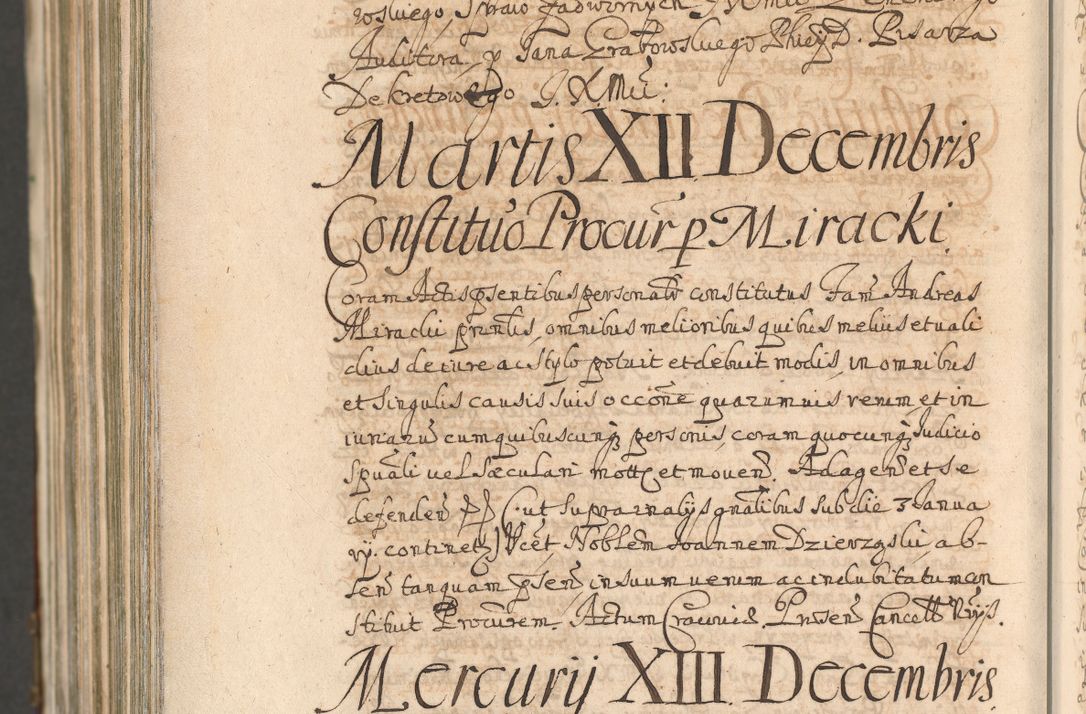 Auditora, y Jana Grabowskiego Pisarza
Dekretowego J. X. Mci:
Martis XII Decembris
Constitũo Procur̃ p Miracki
Coram Actis p̃sentibus personalr̃ constitutus Fam̃ Andreas
Miracki omnibus melioribus quibus melius et uali
dius de iure ac stylo potuit et debuit modis, in omnibus
et singulis causis suis occõne quarumuis rerum, et in
iuriarũ cum quibuscunq; personis, coram quocunq; Judicio
Spũali uel Sæculari mott et mouen̄. Ad agen̄ et se
defenden̄ (: ut supra in alijs gnãlibus sub die 3 Janua
rij. continet) Vcet Noblem̃ Joannem Dzierzgski, ab-
sen̄ tanquam p̃sen̄, in suum uerum ac indubitatum con
stituit Procurem̃. Actum Cracouiæ. Pñsen̄ Cancell
Mercurij XIII Decembris